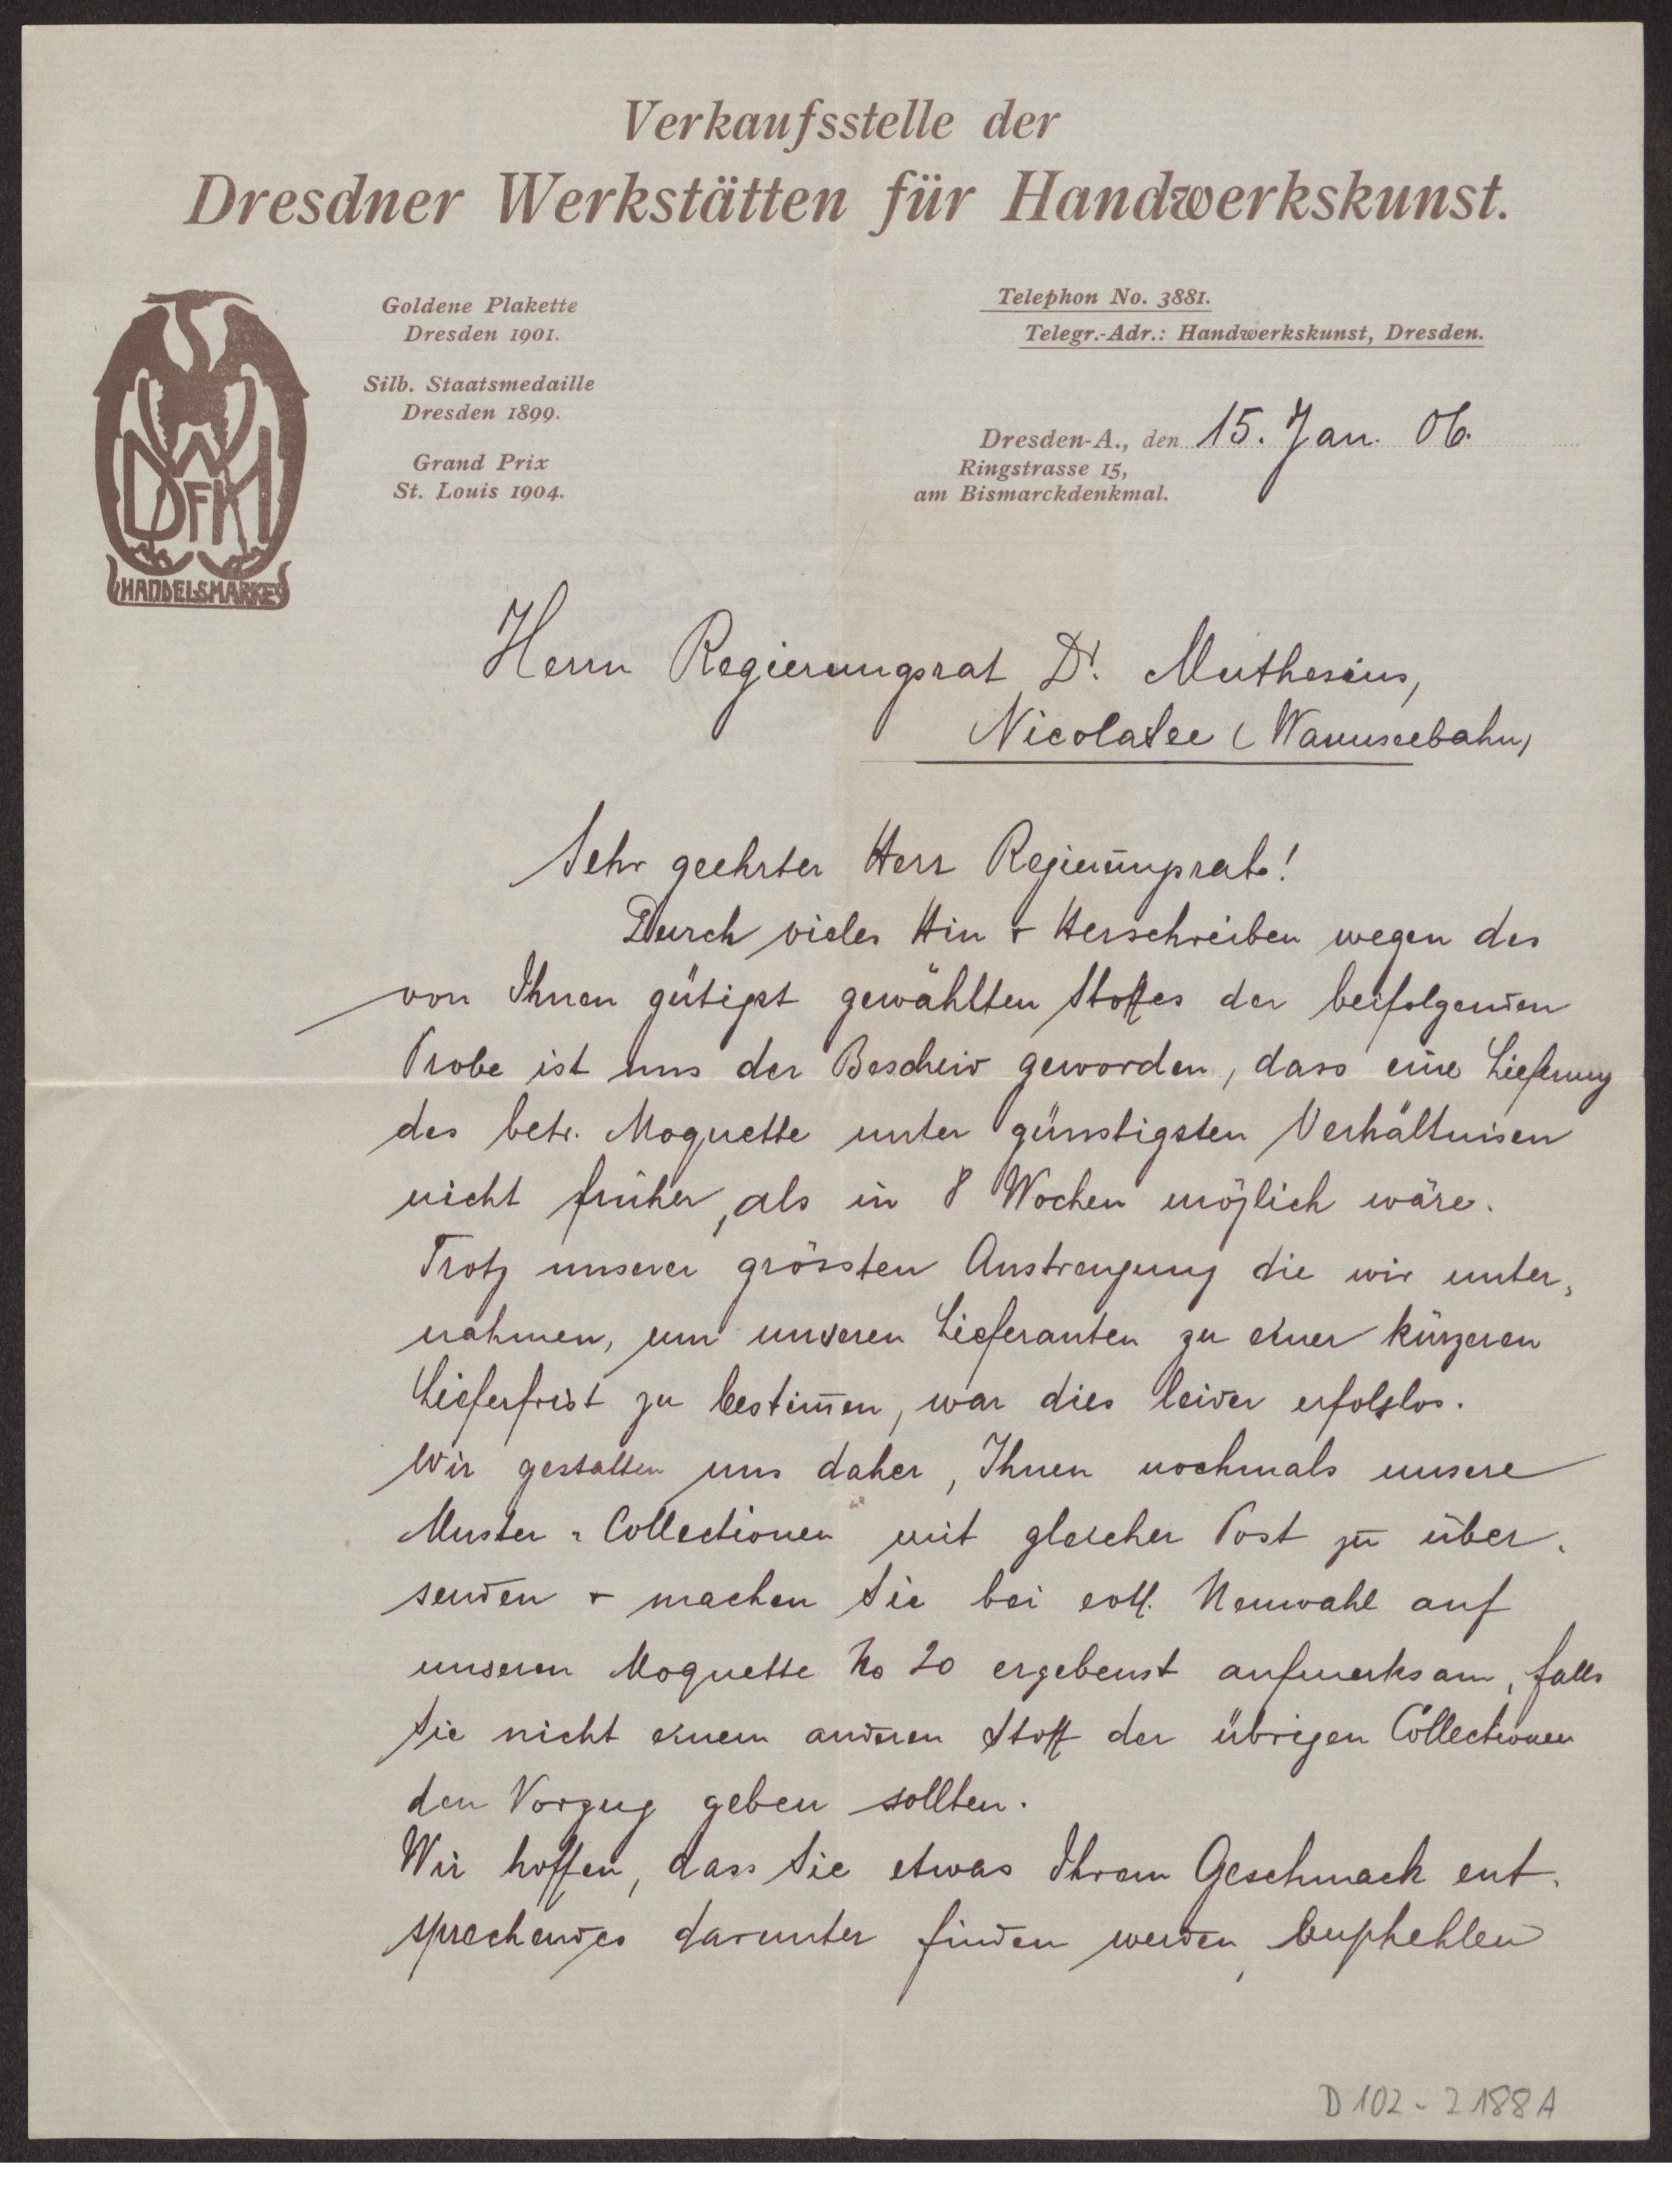 Verkaufsstelle der
Dresdner Werkstätten für Handwerkskunst.
Goldene Plakette
Dresden 1901.
Silb. Staatsmedaille
Dresden 1899.
Grand Prix
St. Louis 1904.
DWFHK
HANDELSMARKE
Telephon No. 3881.
Telegr.-Adr.: Handwerkskunst, Dresden.
Dresden-A., den 15. Jan. 06.
Ringstrasse 15,
am Bismarckdenkmal.
Herrn Regierungsrat Dr. Muthesius,
Nicolasee (Wannseebahn)
Sehr geehrter Herr Regierungsrat!
Durch vieles Hin & Herschreiben wegen des
von Ihnen gütigst gewählten Stoffes der beifolgenden
Probe ist uns der Bescheid geworden, dass eine Lieferung
des betr. Moquette unter günstigsten Verhältnisen
nicht früher, als in 8 Wochen möglich wäre.
Trotz unserer grössten Anstrengung die wir unter-
nahmen, um unseren Lieferanten zu einer kürzeren
Lieferfrist zu bestim̅en, war dies leider erfolglos.
Wir gestatten uns daher, Ihnen nochmals unsere
Muster-Collectionen mit gleicher Post zu über-
senden & machen Sie bei evtl. Neuwahl auf
unseren Moquette No 20 ergebenst aufmerksam, falls
Sie nicht einem anderen Stoff der übrigen Collectionen
den Vorzug geben sollten.
Wir hoffen, dass Sie etwas Ihrem Geschmack ent-
sprechendes darunter finden werden, empfehlen
D 102-2188 A